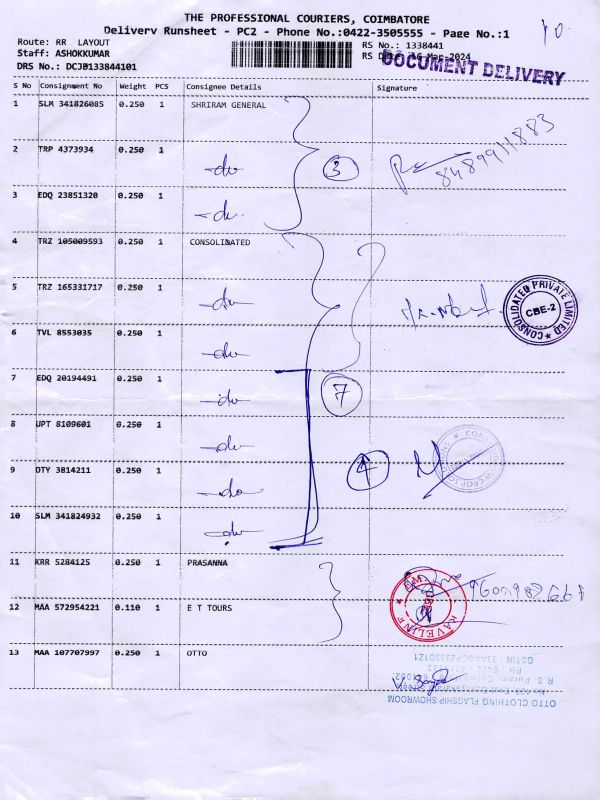 THE PROFESSIONAL COURIERS, COIMBATORE
10.
Delivery Runsheet - PC2 - Phone No.:0422-3505555 - Page No.:1
Route: RR LAYOUT
RS No.: 1338441
Staff: ASHOKKUMAR
16-Mar-2024
DRS No.: DCJB133844101
DOCUMENT DELIVERY
S No Consignment No Weight PCS Consignee Details Signature
1 SLM 341826085 0.250 1 SHRIRAM GENERAL
2 TRP 4373934 0.250 1 -do 3 8489911883
3 EDQ 23851320 0.250 1 -do
4 TRZ 105009593 0.250 1 CONSOLINATED
5 TRZ 165331717 0.250 1 -do
CONSOLIDATED PRIVATE LIMITED CBE-2
6 TVL 8553035 0.250 1 -do
7 EDQ 20194491 0.250 1 -do 7
8 UPT 8109601 0.250 1 -do
9 DTY 3814211 0.250 1 -do 4
10 SLM 341824932 0.250 1 -do
11 KRR 5284125 0.250 1 PRASANNA
12 MAA 572954221 0.110 1 E T TOURS
13 MAA 107707997 0.250 1 OTTO
GSTIN : 33AADCP2333D1Z1
R.S. Puram, Coimbatore
OTTO CLOTHING FLAGSHIP SHOWROOM